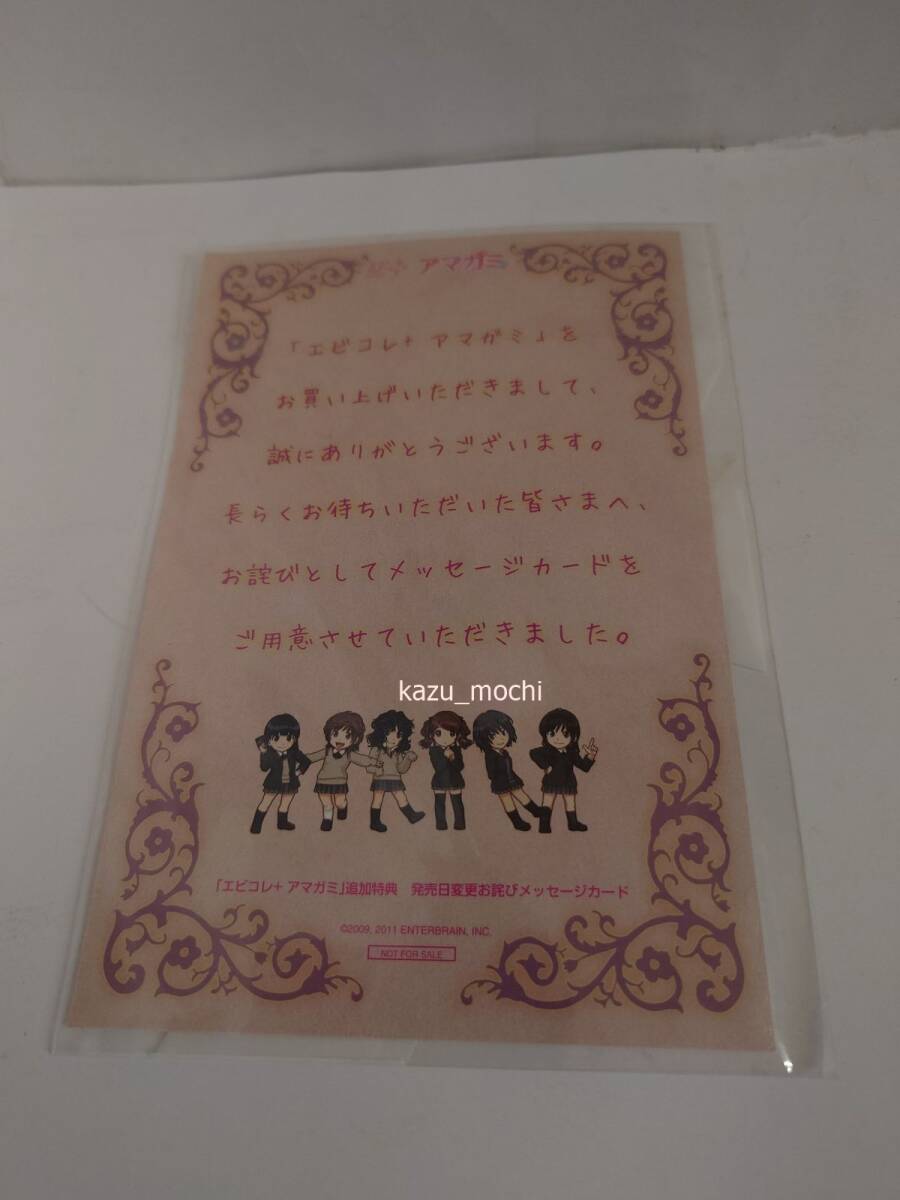 エビコレ+ アマガミ
「エビコレ+ アマガミ」を
お買い上げいただきまして、
誠にありがとうございます。
長らくお待ちいただいた皆さまへ、
お詫びとしてメッセージカードを
ご用意させていただきました。
kazu_mochi
「エビコレ+ アマガミ」追加特典 発売日変更お詫びメッセージカード
©2009, 2011 ENTERBRAIN, INC.
NOT FOR SALE